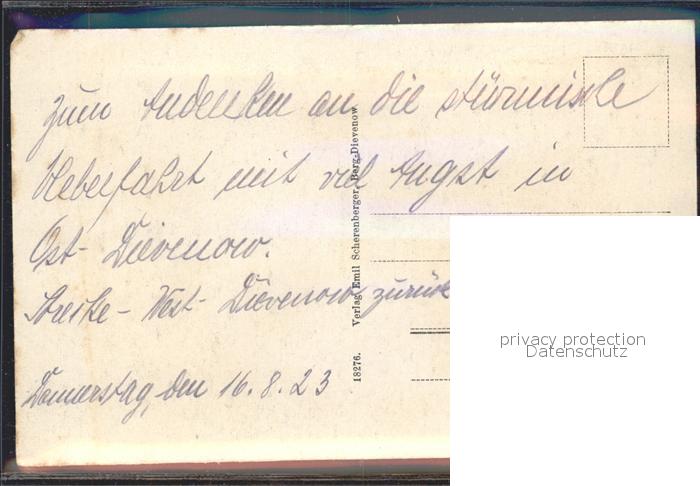 Zum Andenken an die stürmische
Ueberfahrt mit viel Angst in
Ost- Dievenow.
Strecke - West- Dievenow zurück
Donnerstag, den 16.8.23
18276. Verlag Emil Scherenberger, Berg-Dievenow.
privacy protection
Datenschutz